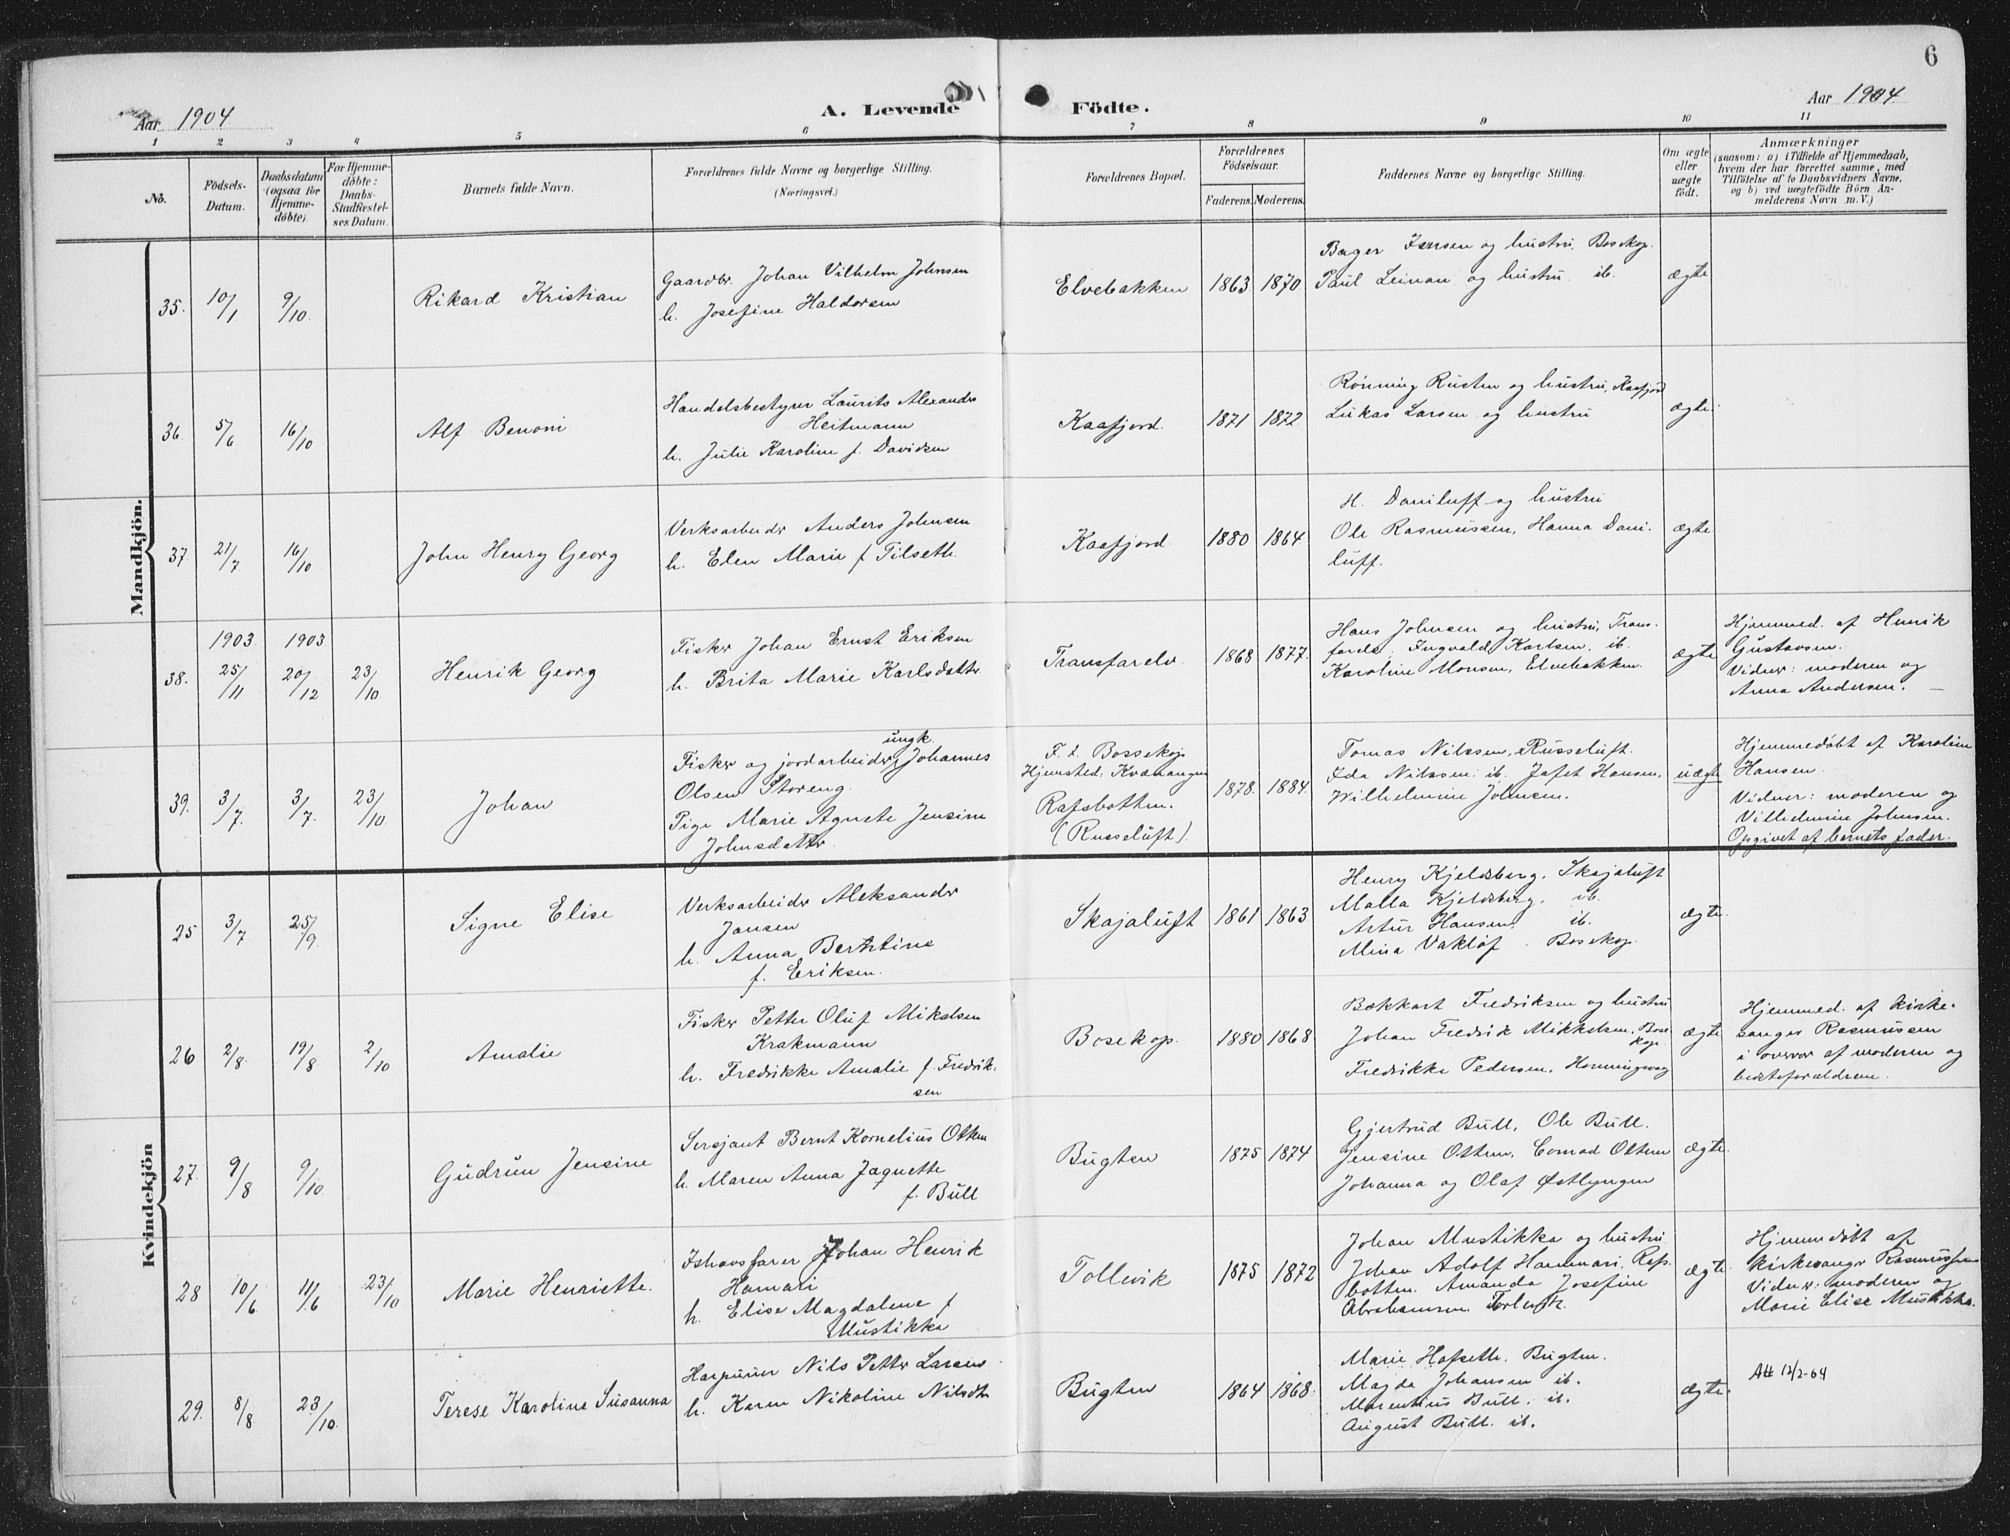 6
Aar 1904
A. Levende Födte.
Aar 1904
1 2 3 4 5 6 7 8 9 10 11
No.
Födsels-
Datum.
Daabsdatum
(ogsaa for
Hjemme-
døbte).
For Hjemme-
døbte:
Daabs-
Stadfæstel-
ses Datum.
Barnets fulde Navn.
Forældrenes fulde Navne og borgerlige Stilling.
(Næringsvei.)
Forældrenes Bopæl.
Forældrenes
Födselsaar.
Faderens. Moderens.
Faddernes Navne og borgerlige Stilling.
Om ægte
eller
uægte
födt.
Anmærkninger
(saasom: a) i Tilfælde af Hjemmedaab,
hvem der har forrettet samme, med
Tilföielse af to Daabsvidners Navne,
og b) ved uægtefödte Börn An-
melderens Navn m.V.)
Mandkjön.
35. 10/1 9/10 Rikard Kristian
Gaardbr. Johan Vilhelm Johnsen
h. Josefine Haldorsen
Elvebakken 1863 1870
Bager Jensen og hustru, Bosekop.
Paul Leinan og hustru ib.
ægte
36. 5/6 16/10 Alf Benoni
Handelsbestyrer Laurits Alexander
Heitmann
h. Julie Karoline f. Davidsen
Kaafjord. 1871 1872
Rönning Rusten og hustru, Kaafjord
Lukas Larsen og hustru
ægte.
37. 21/7 16/10 John Henry Georg
Verksarbeider Anders Johnsen
h. Elen Marie f Tilseth.
Kaafjord. 1880 1864
H. Daniluff og hustru
Ole Rasmussen, Hanna Dani-
luff.
ægte
1903 1903
38. 25/11 20/12 23/10 Henrik Georg
Fisker Johan Ernst Eriksen
h. Brita Marie Karlsdatter
Transfarelv. 1868 1877.
Hans Johnsen og hustru, Trans-
fardr. Ingvald Karlsen, ib.
Karoline Monsen, Elvebakken.
ægte
Hjemmed. af Henrik
Gustavsen.
Vidner: moderen og
Anna Andersen.
39. 3/7. 3/7. 23/10. Johan
ungk.
Fisker og jordarbeider, Johannes
Olsen Storeng.
Pige Marie Agnete Jensine
Johnsdatter
F. t. Bossekop
Hjemsted: Kvænangen
Rafsbotten.
(Russeluft).
1878. 1884.
Tomas Nilssen, Russeluft.
Ida Nilssen ib. Jafet Hansen,
Wilhelmine Johnsen.
uægte
Hjemmedöbt af Karoline
Hansen.
Vidner: moderen og
Villielmine Johnsen.
Opgivet af barnets fader.
Kvindekjön
25 3/7 25/9. Signe Elise
Verksarbeider Aleksander
Jansen
h. Anna Berntine
f. Eriksen.
Skajaluft 1861 1863
Henry Kjeldsberg, Skajaluft
Malla Kjeldsberg. ib.
Artur Hansen, ib.
Mina Vakløf. Bosekop.
ægte.
26 2/8. 19/8 2/10 Amalie
Fisker Petter Oluf Mikalsen
Krakmann
h. Fredrikke Amalie f. Fredrik-
sen
Bosekop. 1880 1868
Bækkart Fredriksen og hustru
Johan Fredrik Mikkelsen, Bose-
kop.
Fredrikke Pedersen, Honningsvaag
ægte
Hjemmed. af kirke-
sanger Rasmussen
i overvær af moderen og
bedsteforældrene.
27. 9/8 9/10 Gudrun Jensine
Sersjant Bernt Kornelius Olsen
h. Maren Anna Jagnette
f. Bull
Bugten 1875 1874
Gjertrud Bull, Ole Bull.
Jensine Ottem, Conrad Ottem
Johanna og Olaf Østlyngen
ægte.
28 10/6 11/6 23/10 Marie Henriette.
Ishavsfarer Johan Henrik
Hamari
h. Elise Magdalene f
Mustikka
Tollevik 1875 1872
Johan Mustikka og hustru
Johan Adolf Hammari, Rafs-
botten. Amanda Josefine
Abrahamsen
ægte.
Hjemmedöbt af
kirkesanger Rasmussen
Vidner: moderen og
Marie Elise Mustikka.
29. 8/8 23/10. Terese Karoline Susanna
Harpuner Nils Petter Larsen
h. Karen Nikoline Nilsdtr
Bugten 1864 1868.
Marie Hofseth. Bugten.
Magda Johansen ib.
Marentius Bull. ib.
August Bull. ib.
ægte.
Att 12/2-64